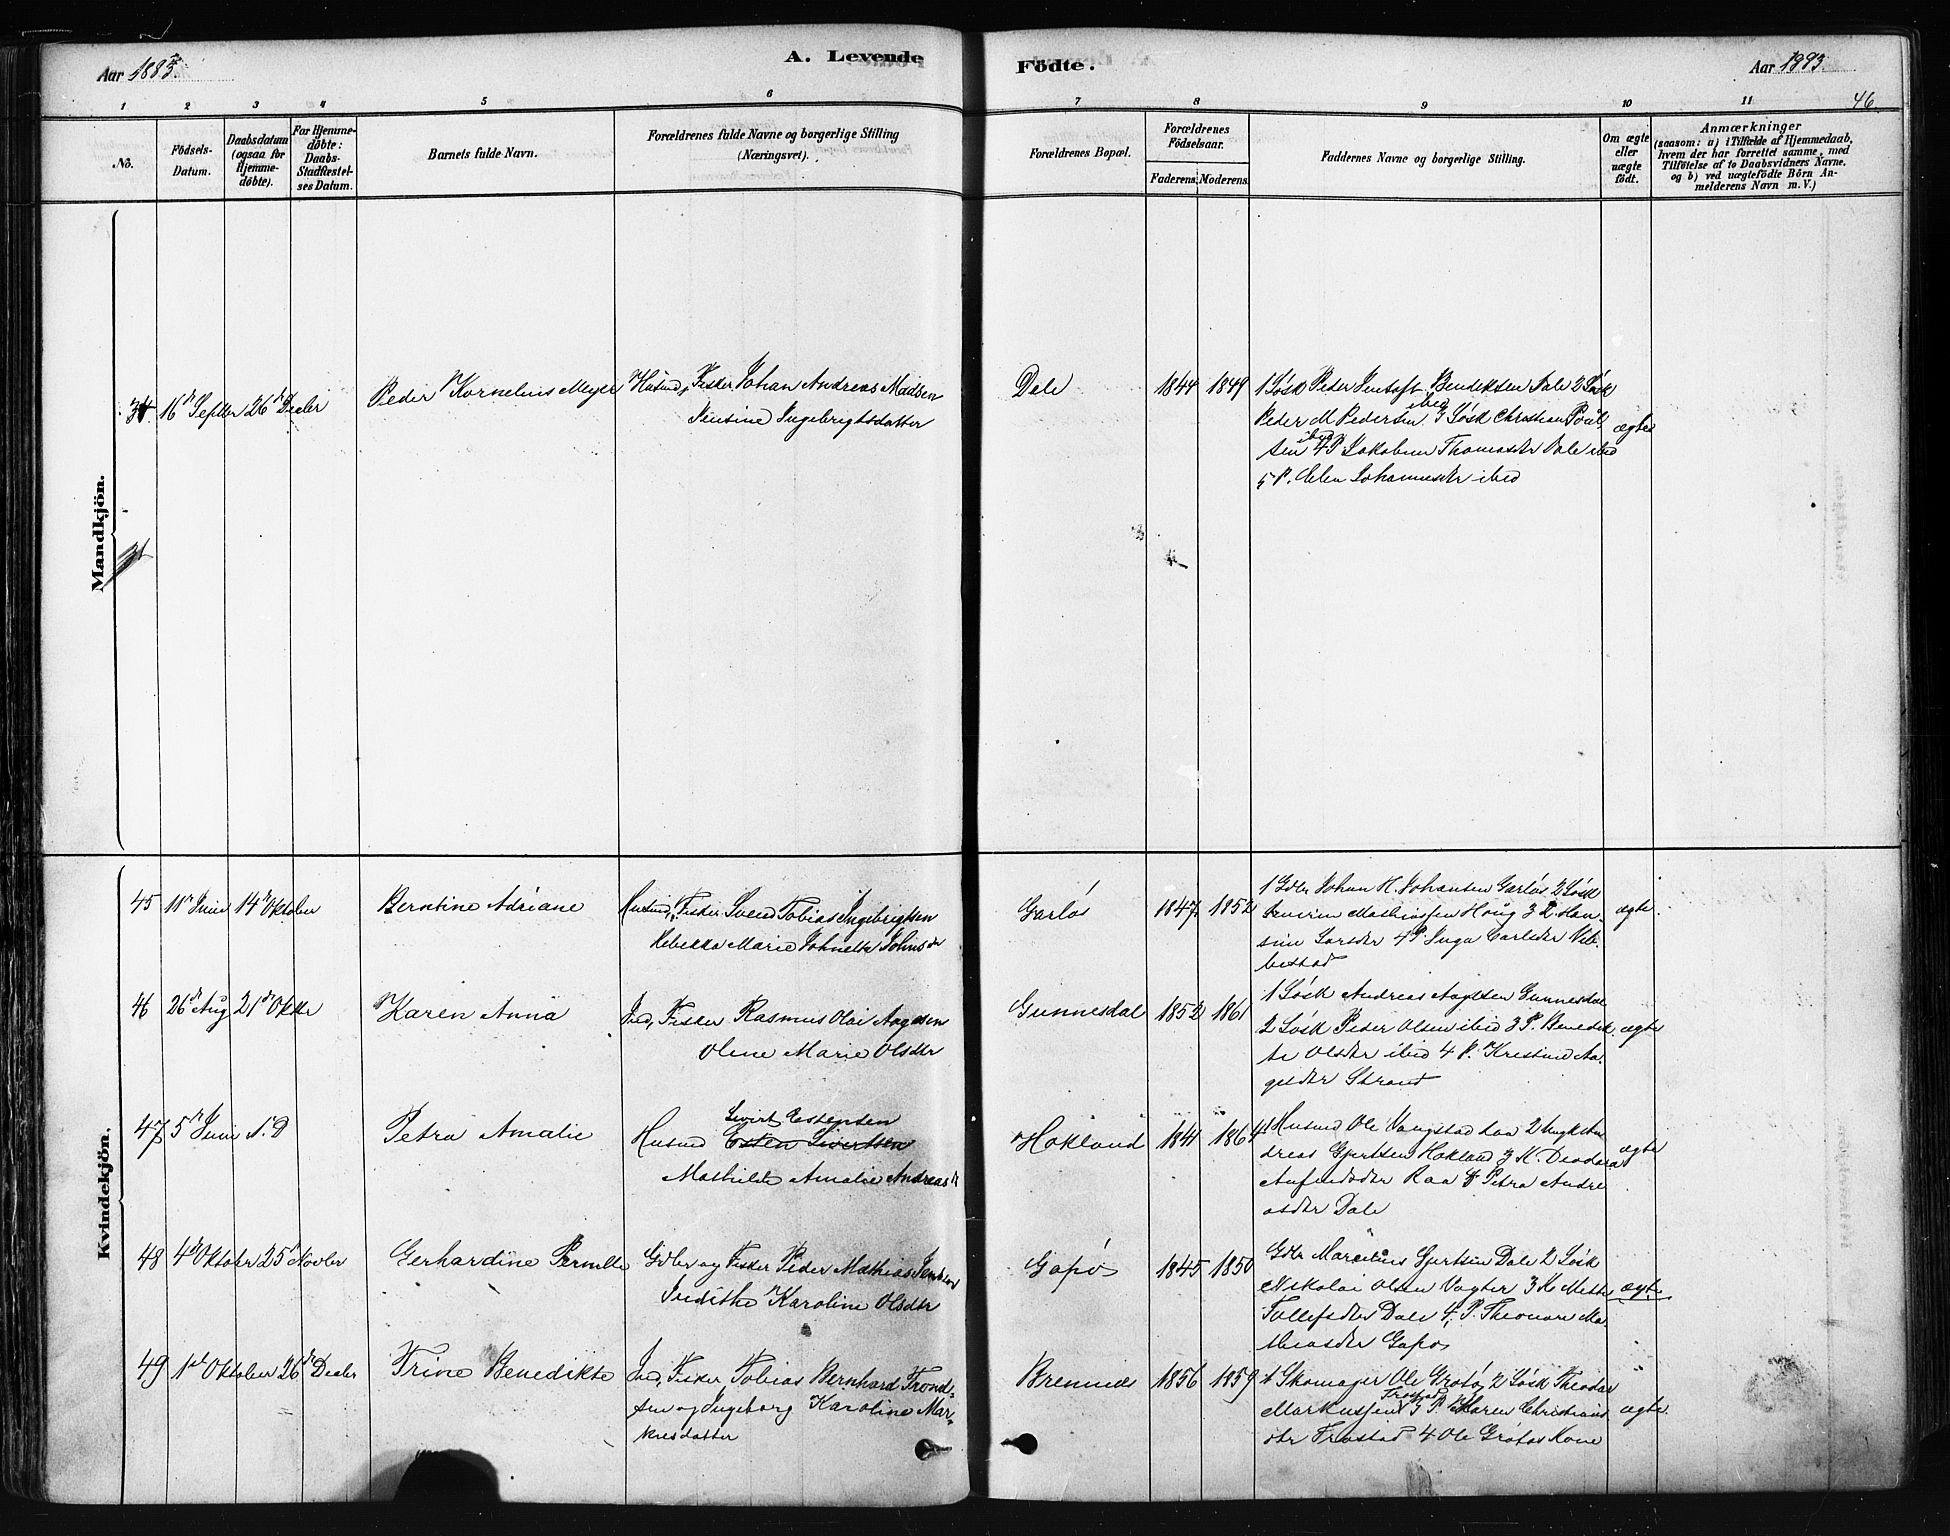 A. Levende
Födte.
Aar 1883.
Aar 1893.
46.
1 2 3 4 5 6 7 8 9 10 11
No.
Födsels-
Datum.
Daabsdatum
(ogsaa for
Hjemme-
döbte).
For Hjemme-
döbte:
Daabs-
Stadfæstel-
ses Datum.
Barnets fulde Navn.
Forældrenes fulde Navne og borgerlige Stilling
(Næringsvei).
Forældrenes Bopæl.
Forældrenes
Födselsaar.
Faderens. Moderens.
Faddernes Navne og borgerlige Stilling.
Om ægte
eller
uægte
födt.
Anmærkninger
(saasom: a) i Tilfælde af Hjemmedaab,
hvem der har forrettet samme, med
Tilföielse af to Daabsvidners Navne,
og b) ved uægtefödte Börn An-
melderens Navn m. V.)
Mandkjön.
34 16de Septbr 26de Decbr
Peder Kornelius Meyer
Husmd, Fisker Johan Andreas Madsen
Jensine Ingebrigtsdatter
Dale
1844 1849
1 Løsk Peder Jentoft Bendiksen Dale 2 Løsk
Peder M Pedersen ibid 3 Løsk Christian Poul-
sen ibid 4 P Jakobine Thomasdtr Dale ibid
5 P. Elen Johannesdtr ibid
ægte
Kvindekjön.
45 11te Juni 14de Oktober
Berntine Adriane
Husmd, Fisker Svend Tobias Ingebrigtsen
Rebekka Marie Johnette Johnsdr
Garløs
1847 1852
1 Gdbr Johan H. Johansen Garløs 2 Løsk
Severin Mathiassen Houg 3 P. Han-
sine Larsdtr 4 P. Inga Carlsdtr Vib-
bestad
ægte
46 26de Aug 21de Oktbr
Karen Anna
Ind, Fisker Rasmus Olai Aagesen
Oline Marie Olsdtr
Gunnesdal
1852 1861
1 Løsk Andreas Aagesen Gunnesdal
2 Løsk Peder Olsen ibid 3 P. Benedik
te Olsdtr ibid 4 P. Kristine Aa-
gesdtr Strand
ægte
47 5te Juni S. D
Petra Amalie
Sivert Estensen
Husmd Esten Sivertsen
Mathilde Amalie Andreasdr
Hokland
1841 1864
1 Husmd Ole Vangstad 2 Ungk An-
dreas Gjertsen Hokland 3 K. Deodora
Raa 4 Petra Andre
asdtr Dale
ægte
48 4de Oktober 25de Novbr
Gerhardine Pernille
Gdbr og Fisker Peder Mathias Jenssen
Judithe Karoline Olsdtr
Gapø
1845 1850
Gdbr Marcelius Gjertsen Dale 2 Løsk
Nikolai Olsen Vogter 3 K Mette
Tollefsdtr Dale 4. P. Theonore Ma-
thiasdtr Gapø
ægte
49 1ste Oktober 26de Decbr
Trine Benedikte
Ind, Fisker Tobias Bernhard Trond-
sen og Ingeborg Karoline Mar-
kusdatter
Bremnes
1856 1859
1 Skomager Ole Grøtø 2 Løsk Theodor
Markussen Trastad 3 P. Karen Christians
dtr Trastad 4 Ole Grøtøs Kone
ægte